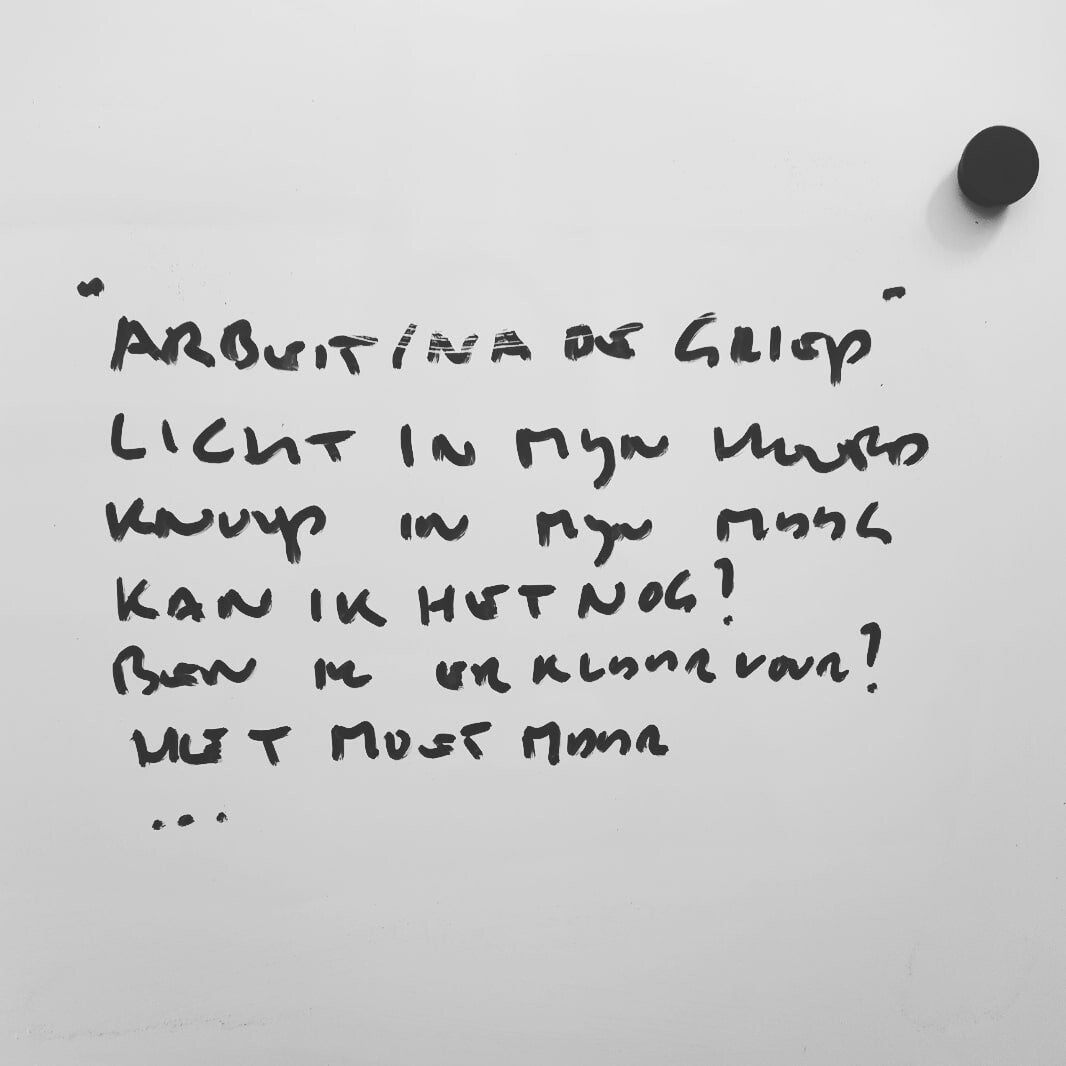 "ARBEIT/NA DE GRIEP"
LICHT IN MYN HOOFD
KNUYP IN MYN MAAG
KAN IK HET NOG?
BEN IK ER KLAAR VOOR?
HET MOET MAAR
...